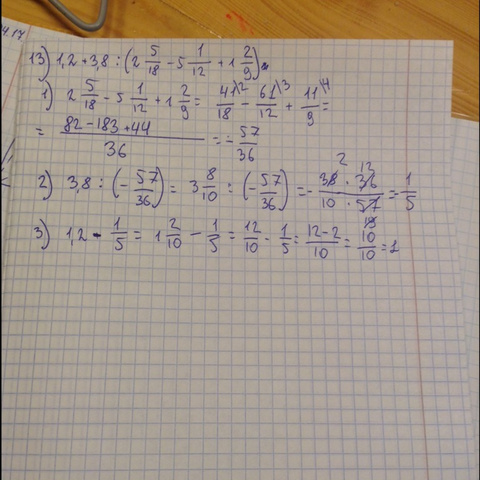 14.17
13) 1,2 + 3,8 : (2 5/18 - 5 1/12 + 1 2/9) =
1) 2 5/18 - 5 1/12 + 1 2/9 = 41\2/18 - 61\3/12 + 11\4/9 =
= 82 - 183 + 44/36 = - 57/36
2) 3,8 : (- 57/36) = 3 8/10 : (- 57/36) = - 38 · 36/10 · 57 = - 1/5
2 12
19
3) 1,2 - 1/5 = 1 2/10 - 1/5 = 12/10 - 1/5 = 12 - 2/10 = 10/10 = 1